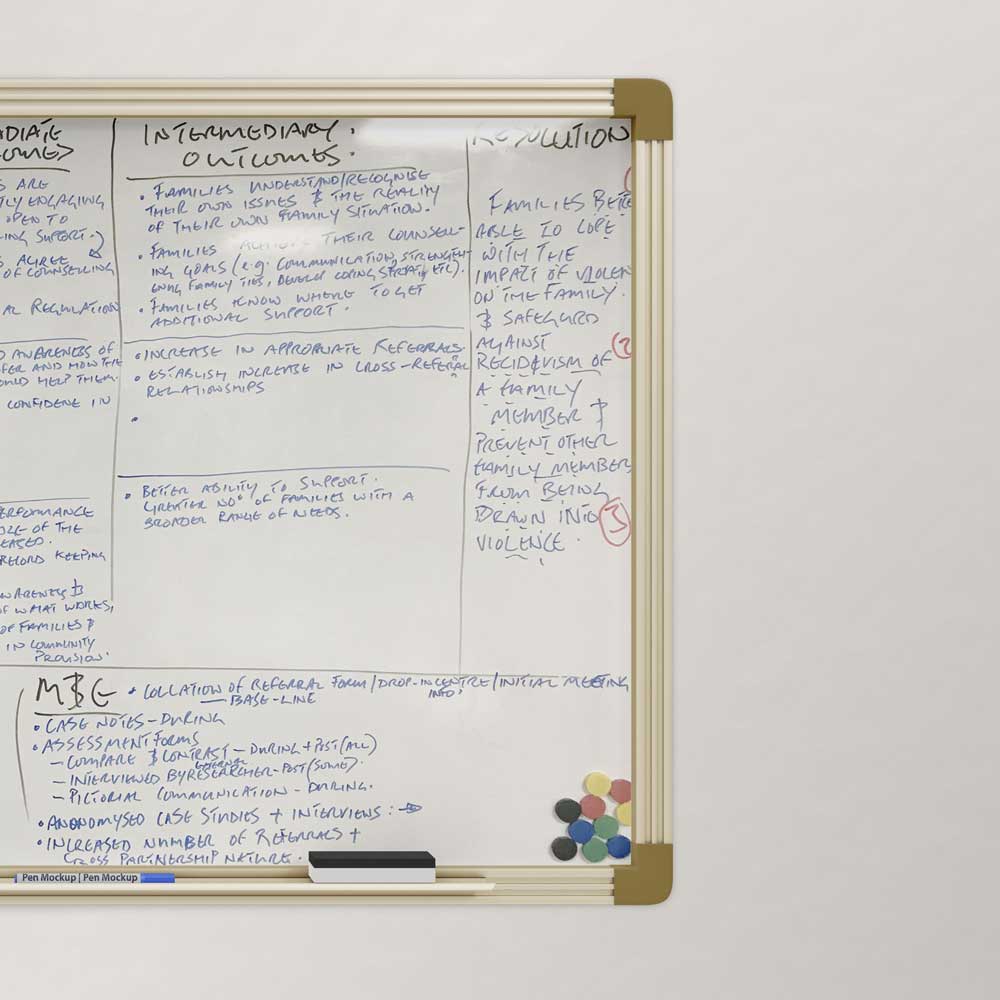 DIATE
OMES
S ARE
TLY ENGAGING
OPEN TO
ING SUPPORT.
S AGREE
OF COUNSELLING
AL REGULATION
D AWARENESS OF
FER AND HOW THE
OULD HELP THEM.
CONFIDENE IN
ERFORMANCE
OLE OF THE
EASED.
RECORD KEEPING
WARENESS &
OF WHAT WORKS,
OF FAMILIES &
IN COMMUNITY
PROVISION.
INTERMEDIARY.
OUTCOMES.
• FAMILIES UNDERSTAND/RECOGNISE
THEIR OWN ISSUES & THE REALITY
OF THEIR OWN FAMILY SITUATION.
• FAMILIES ACHIEVE THEIR COUNSELL-
ING GOALS (e.g. COMMUNICATION, STRENGTH-
ENING FAMILY TIES, DEVELOP COPING STRATS, ETC).
• FAMILIES KNOW WHERE TO GET
ADDITIONAL SUPPORT.
• INCREASE IN APPROPRIATE REFERRALS.
• ESTABLISH INCREASE IN CROSS-REFERAL
RELATIONSHIPS
•
• BETTER ABILITY TO SUPPORT.
GREATER NO° OF FAMILIES WITH A
BROADER RANGE OF NEEDS.
RESOLUTION
FAMILIES BETTE
ABLE TO COPE
WITH THE
IMPACT OF VIOLEN
ON THE FAMILY.
& SAFEGUARD
AGAINST
RECIDIVISM OF
A FAMILY
MEMBER &
PREVENT OTHER
FAMILY MEMBERS
FROM BEING
DRAWN INTO
VIOLENCE.
2
3
M&E • COLLATION OF REFERRAL FORM/DROP-IN CENTRE/INITIAL MEETING
INFO
— BASE-LINE
• CASE NOTES - DURING
• ASSESSMENT FORMS
- COMPARE & CONTRAST - DURING + POST (ALL)
EXTERNAL
- INTERVIEWED BY RESEARCHER - POST (SOME).
- PICTORIAL COMMUNICATION - DURING.
• ANONOMYSED CASE STUDIES + INTERVIEWS: →
• INCREASED NUMBER OF REFERRALS +
CROSS PARTNERSHIP NATURE.
Pen Mockup | Pen Mockup